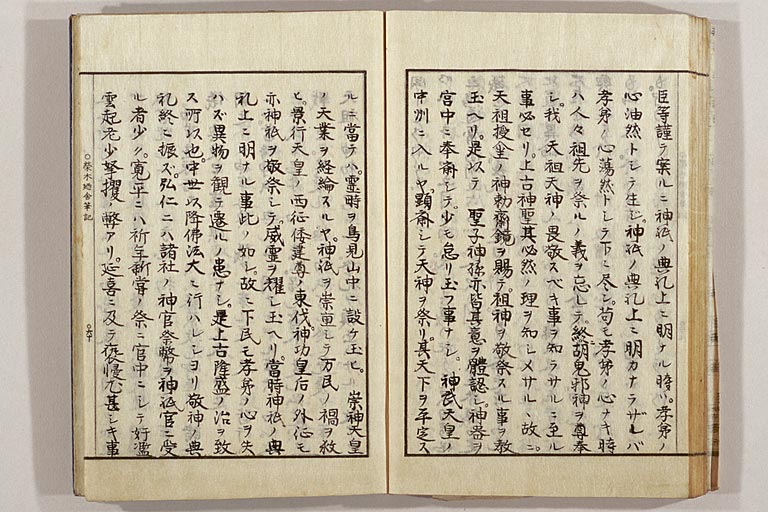 臣等謹テ案ルニ神祇ノ典礼上ニ明ナル時ハ孝弟ノ
心油然トシテ生ジ神祇ノ典礼上ニ明カナラザレバ
孝弟ノ心蕩然トシテ下ニ尽シ苟モ孝弟ノ心ナキ時
ハ人々祖先ヲ祭ルノ義ヲ忘レテ終胡鬼邪神ヲ尊奉
シ我天祖天神ノ畏敬スベキ事ヲ知ラサルニ至ル
事必セリ上古神聖其必然ノ理ヲ知シメサルヽ故ニ
天祖授坐ノ神勅斎鏡ヲ賜テ祖神ヲ敬祭スル事ヲ教
玉ヘリ是以テ聖子神孫亦皆其意ヲ體認シ神器ヲ
宮中ニ奉斎シテ少モ怠リ玉フ事ナシ神武天皇ノ
中州ニ入ルヤ顕斎シテ天神ヲ祭リ其天下ヲ平定ス
ルニ當テハ霊時ヲ鳥見山中ニ設ケ玉ヒ崇神天皇
ノ天業ヲ経綸スルヤ神祇ヲ崇重シテ万民ノ禍ヲ救
ヒ景行天皇ノ西征倭建尊ノ東伐神功皇后ノ外征モ
亦神祇ヲ敬祭シテ威霊ヲ耀シ玉ヘリ當時神祇ノ典
礼上ニ明ナル事此ノ如シ故ニ下民モ孝弟ノ心ヲ失
ハズ異物ヲ観テ遷ルノ患ナシ是上古隆盛ノ治ヲ致
ス所以也中世以降佛法大ニ行ハレシヨリ敬神ノ典
礼終ニ振ズ弘仁ニハ諸社ノ神官祭幣ヲ神祇官ニ受
ル者少ク寛平ニハ祈年新嘗ノ祭ニ官中ニシテ奸濫
雲起老少拏攫ノ弊アリ延喜ニ及テ褻慢尤甚シキ事